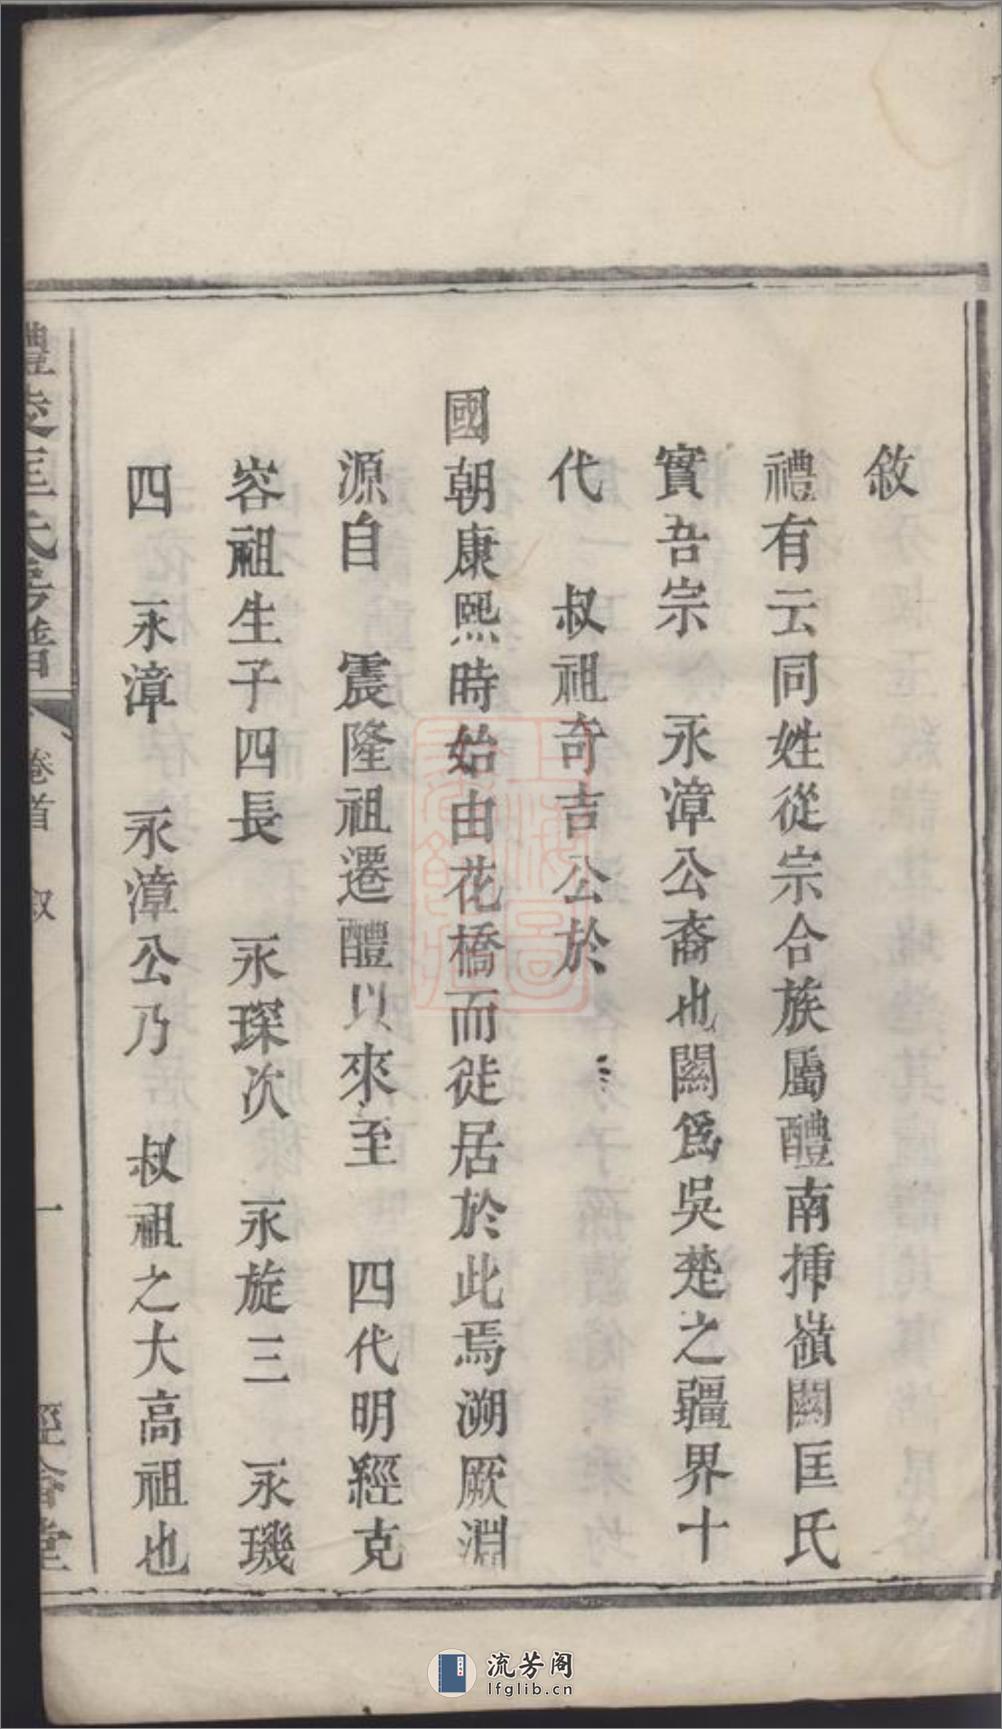 敘
禮有云同姓從宗合族屬醴南揷嶺關匡氏
實吾宗　永漳公裔也關爲吳楚之疆界十
代　叔祖奇吉公於
國朝康熙時始由花橋而徙居於此焉溯厥淵
源自　震隆祖遷醴以來至　四代明經克
容祖生子四長　永琛次　永旋三　永璣
四　永漳　永漳公乃　叔祖之大高祖也
醴陵匡氏房譜
卷首
敘
一
流芳阁
lfglib.cn